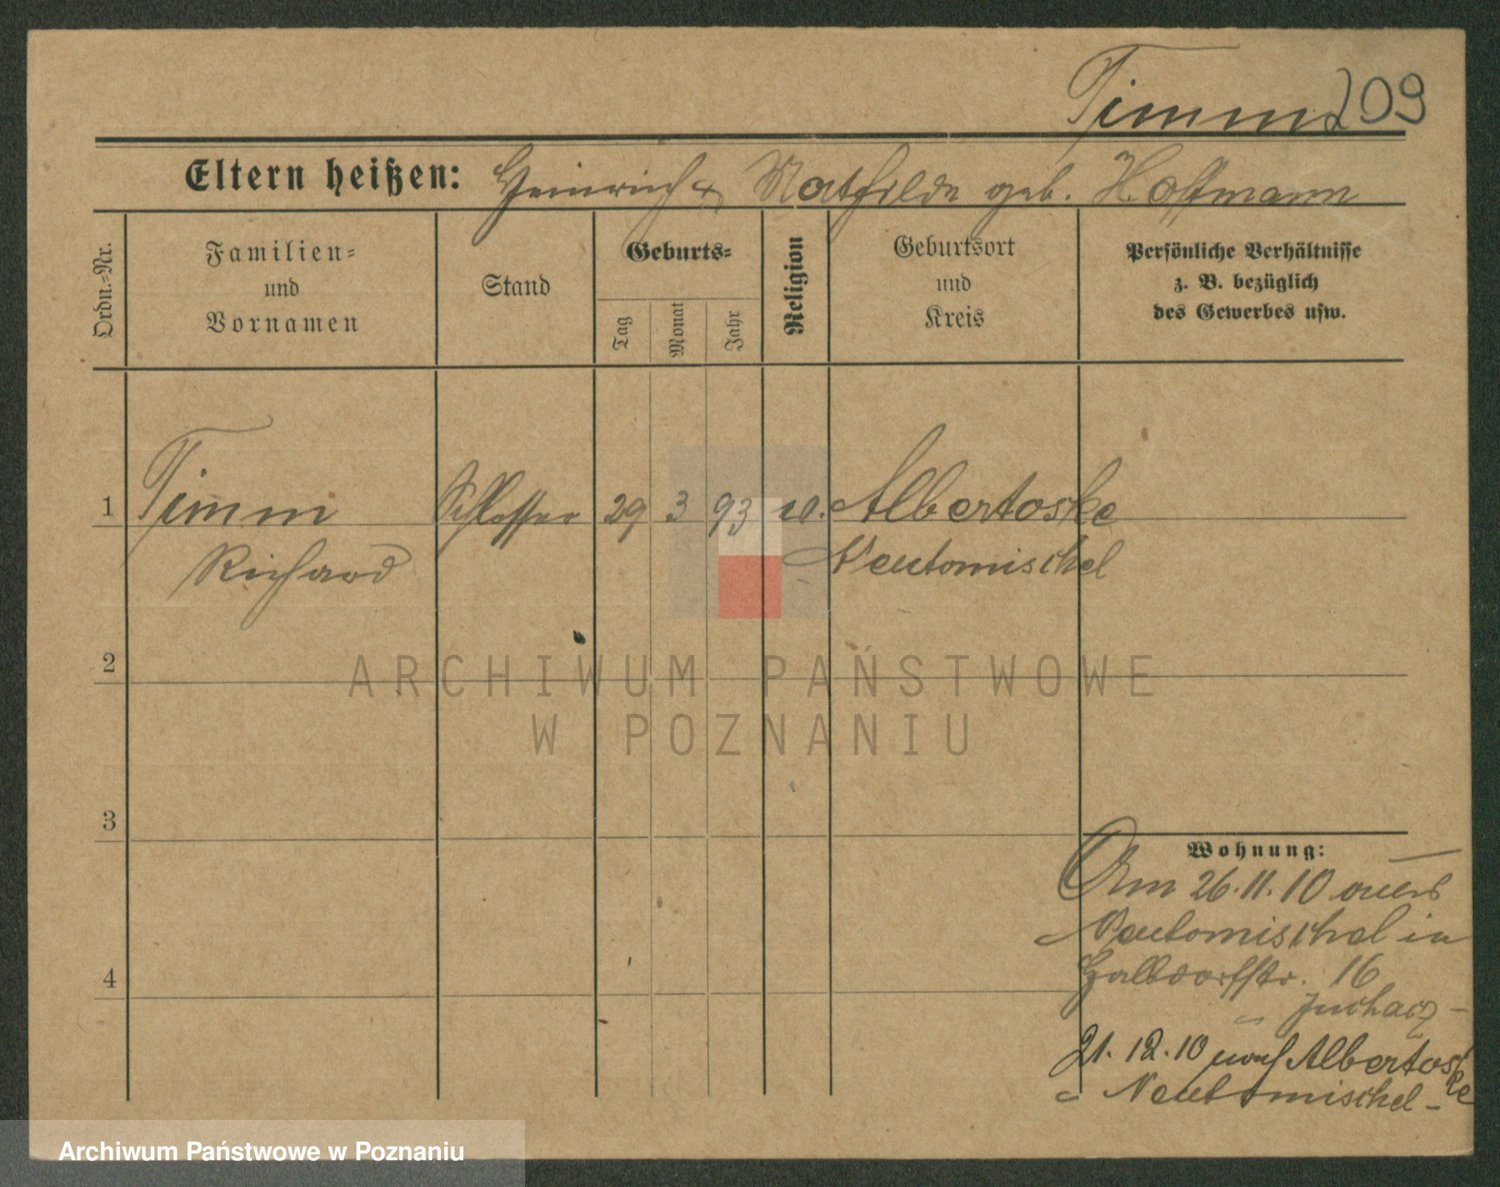 Timm 209
Eltern heißen: Heinrich & Mathilde geb. Hoffmann
Ordn.-Nr.
Familien-
und
Vornamen
Stand
Geburts-
Tag
Monat
Jahr
Religion
Geburtsort
und
Kreis
Persönliche Verhältnisse
z. B. bezüglich
des Gewerbes usw.
1 Timm Schlosser 29 3 93 Albertoske
Richard Neutomischel
2
ARCHIWUM PAŃSTWOWE
W POZNANIU
3
Wohnung:
Am 26.11.10 aus
Neutomischel in
Halbdorfstr. 16
Juchacz -
4
21.12.10 nach Albertoske
Neutomischel -
Archiwum Państwowe w Poznaniu